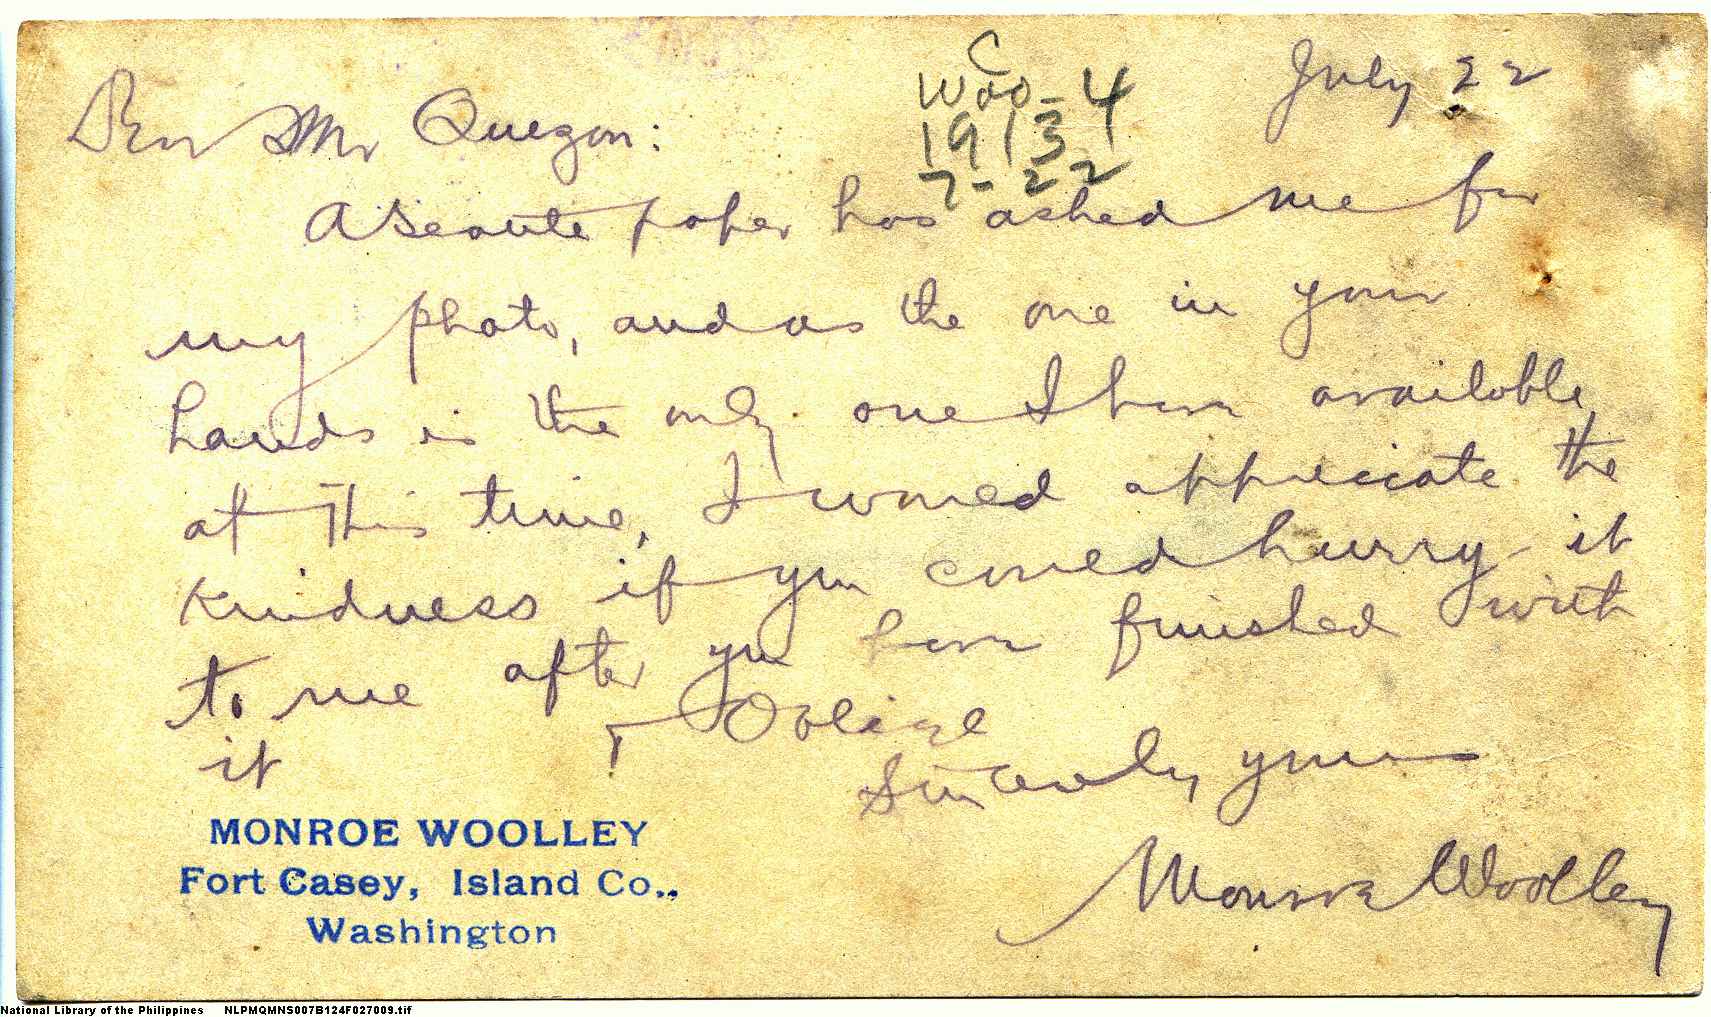 July 22
C
Woo-4
1913
7-22
Dear Mr Quezon:
A Seattle paper has asked me for
my photo, and as the one in your
hands is the only one I have available
at this time, I would appreciate the
kindness if you could hurry it
to me after you have finished with
it & Oblige
Sincerely yours
Monroe Woolley
MONROE WOOLLEY
Fort Casey, Island Co.,
Washington
National Library of the Philippines NLPMQMNS007B124F027009.tif